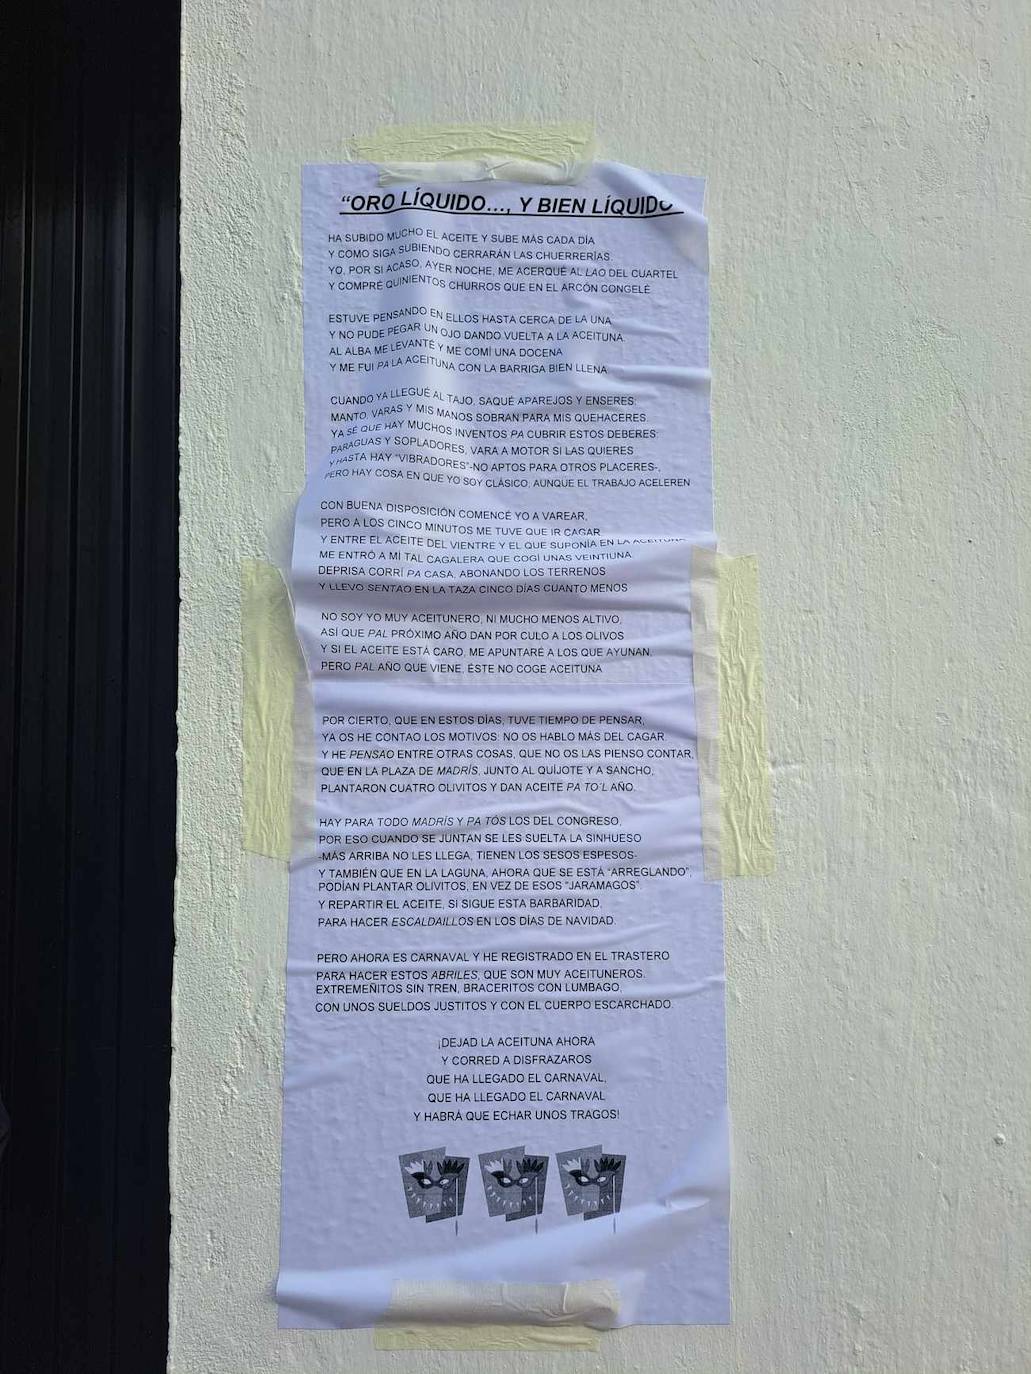 “ORO LÍQUIDO..., Y BIEN LÍQUIDO
HA SUBIDO MUCHO EL ACEITE Y SUBE MÁS CADA DÍA
Y CÓMO SIGA SUBIENDO CERRARÁN LAS CHUERRERÍAS.
YO, POR SI ACASO, AYER NOCHE, ME ACERQUÉ AL LAO DEL CUARTEL
Y COMPRÉ QUINIENTOS CHURROS QUE EN EL ARCÓN CONGELÉ.
ESTUVE PENSANDO EN ELLOS HASTA CERCA DE LA UNA
Y NO PUDE PEGAR UN OJO DANDO VUELTA A LA ACEITUNA.
AL ALBA ME LEVANTÉ Y ME COMÍ UNA DOCENA
Y ME FUI PA LA ACEITUNA CON LA BARRIGA BIEN LLENA.
CUANDO YA LLEGUÉ AL TAJO, SAQUÉ APAREJOS Y ENSERES:
MANTO, VARAS Y MIS MANOS SOBRAN PARA MIS QUEHACERES.
YA SÉ QUE HAY MUCHOS INVENTOS PA CUBRIR ESTOS DEBERES:
PARAGUAS Y SOPLADORES, VARA A MOTOR SI LAS QUIERES
Y HASTA HAY “VIBRADORES”-NO APTOS PARA OTROS PLACERES-,
PERO HAY COSA EN QUE YO SOY CLÁSICO, AUNQUE EL TRABAJO ACELEREN
CON BUENA DISPOSICIÓN COMENCÉ YO A VAREAR,
PERO A LOS CINCO MINUTOS ME TUVE QUE IR CAGAR
Y ENTRE EL ACEITE DEL VIENTRE Y EL QUE SUPONÍA EN LA ACEITUNA
ME ENTRÓ A MÍ TAL CAGALERA QUE COGÍ UNAS VEINTIUNA.
DEPRISA CORRÍ PA CASA, ABONANDO LOS TERRENOS
Y LLEVO SENTAO EN LA TAZA CINCO DÍAS CUANTO MENOS
NO SOY YO MUY ACEITUNERO, NI MUCHO MENOS ALTIVO,
ASÍ QUE PAL PRÓXIMO AÑO DAN POR CULO A LOS OLIVOS
Y SI EL ACEITE ESTÁ CARO, ME APUNTARÉ A LOS QUE AYUNAN.
PERO PAL AÑO QUE VIENE, ÉSTE NO COGE ACEITUNA
POR CIERTO, QUE EN ESTOS DÍAS, TUVE TIEMPO DE PENSAR,
YA OS HE CONTAO LOS MOTIVOS: NO OS HABLO MÁS DEL CAGAR.
Y HE PENSAO ENTRE OTRAS COSAS, QUE NO OS LAS PIENSO CONTAR,
QUE EN LA PLAZA DE MADRÍS, JUNTO AL QUÍJOTE Y A SANCHO,
PLANTARON CUATRO OLIVITOS Y DAN ACEITE PA TO’L AÑO.
HAY PARA TODO MADRÍS Y PA TÓS LOS DEL CONGRESO,
POR ESO CUANDO SE JUNTAN SE LES SUELTA LA SINHUESO
-MÁS ARRIBA NO LES LLEGA, TIENEN LOS SESOS ESPESOS-
Y TAMBIÉN QUE EN LA LAGUNA, AHORA QUE SE ESTÁ “ARREGLANDO”,
PODÍAN PLANTAR OLIVITOS, EN VEZ DE ESOS “JARAMAGOS”.
Y REPARTIR EL ACEITE, SI SIGUE ESTA BARBARIDAD,
PARA HACER ESCALDAILLOS EN LOS DÍAS DE NAVIDAD.
PERO AHORA ES CARNAVAL Y HE REGISTRADO EN EL TRASTERO
PARA HACER ESTOS ABRILES, QUE SON MUY ACEITUNEROS.
EXTREMEÑITOS SIN TREN, BRACERITOS CON LUMBAGO,
CON UNOS SUELDOS JUSTITOS Y CON EL CUERPO ESCARCHADO.
¡DEJAD LA ACEITUNA AHORA
Y CORRED A DISFRAZAROS
QUE HA LLEGADO EL CARNAVAL,
QUE HA LLEGADO EL CARNAVAL
Y HABRÁ QUE ECHAR UNOS TRAGOS!